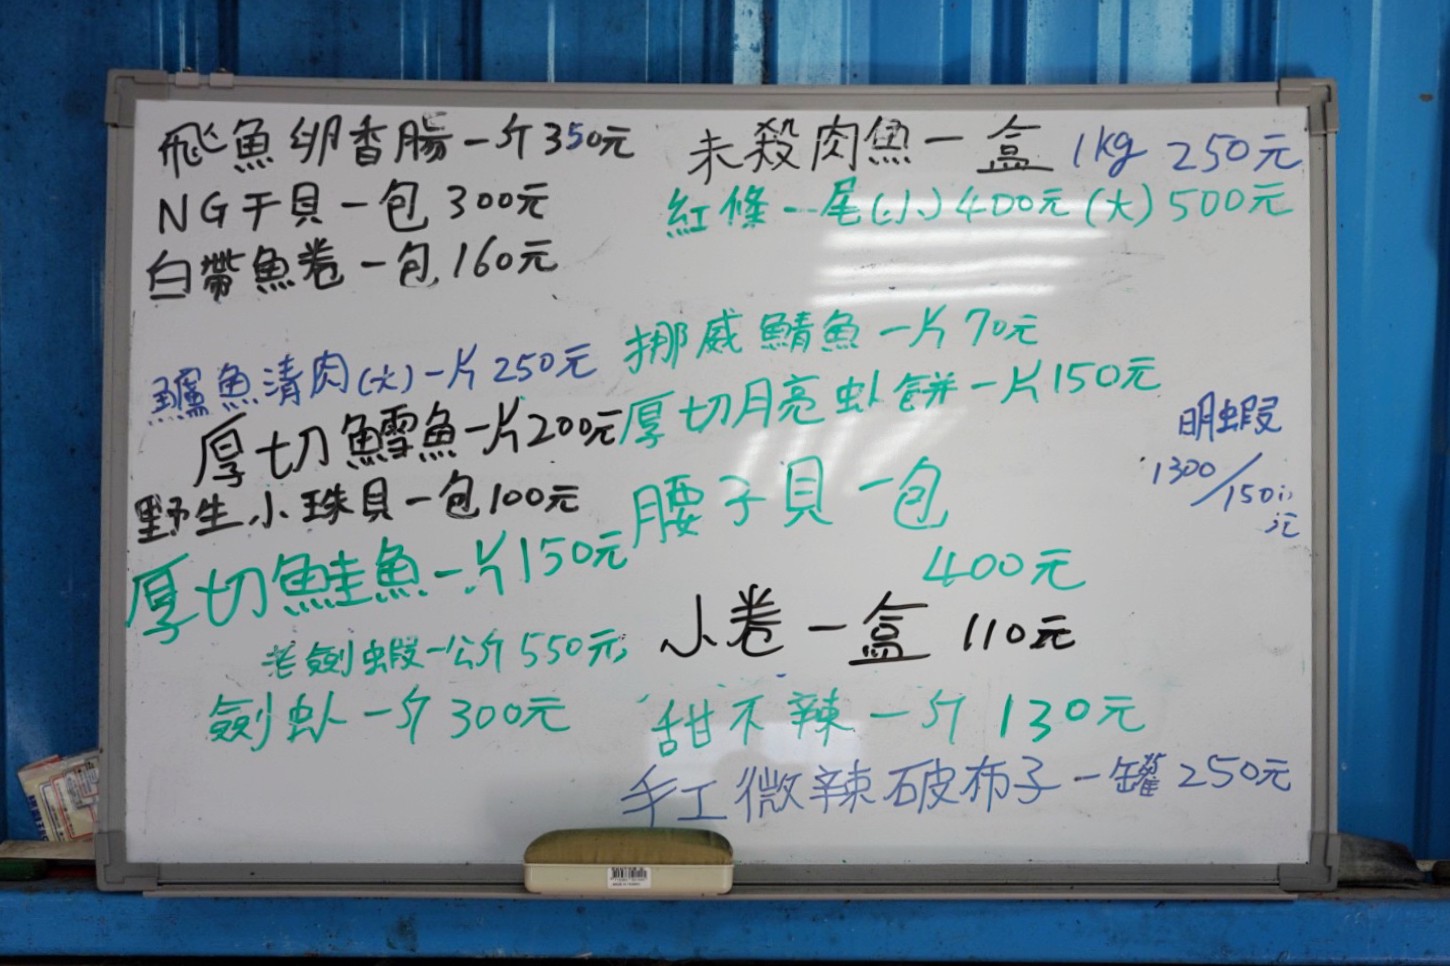 飛魚卵香腸一斤350元
NG干貝一包300元
白帶魚卷一包160元
鱸魚清肉(大)一片250元
厚切鱈魚一片200元
野生小珠貝一包100元
厚切鮭魚一片150元
老劍蝦一公斤550元
劍虾一斤300元
未殺肉魚一盒 1kg 250元
紅條一尾(小)400元(大)500元
挪威鯖魚一片70元
厚切月亮虾餅一片150元
腰子貝一包
400元
小卷一盒 110元
甜不辣一斤 130元
手工微辣破布子一罐250元
明蝦
1300/150
元